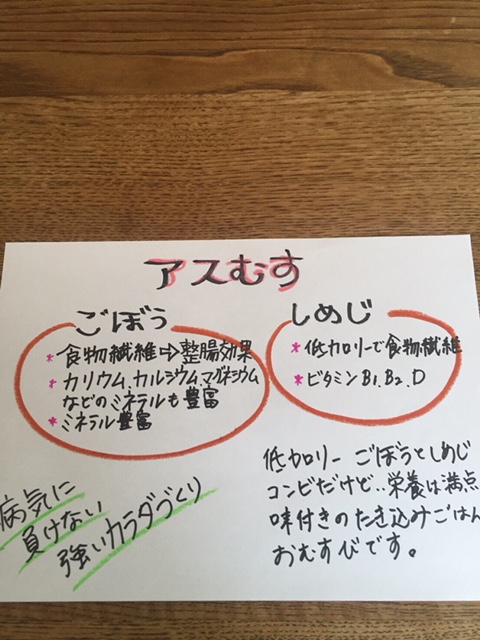 アスむす
ごぼう
* 食物繊維⇨整腸効果
* カリウム、カルシウム、マグネシウム
などのミネラルも豊富
* ミネラル豊富
しめじ
* 低カロリーで食物繊維
* ビタミンB1、B2、D
低カロリー ごぼうとしめじ
コンビだけど…栄養は満点
味付きのたき込みごはん
おむすびです。
病気に
負けない
強いカラダづくり